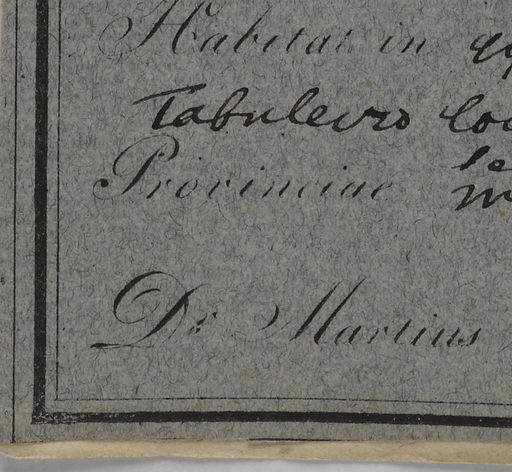 Habitat in
Tabuleiro
Provinciae
Dr Martius